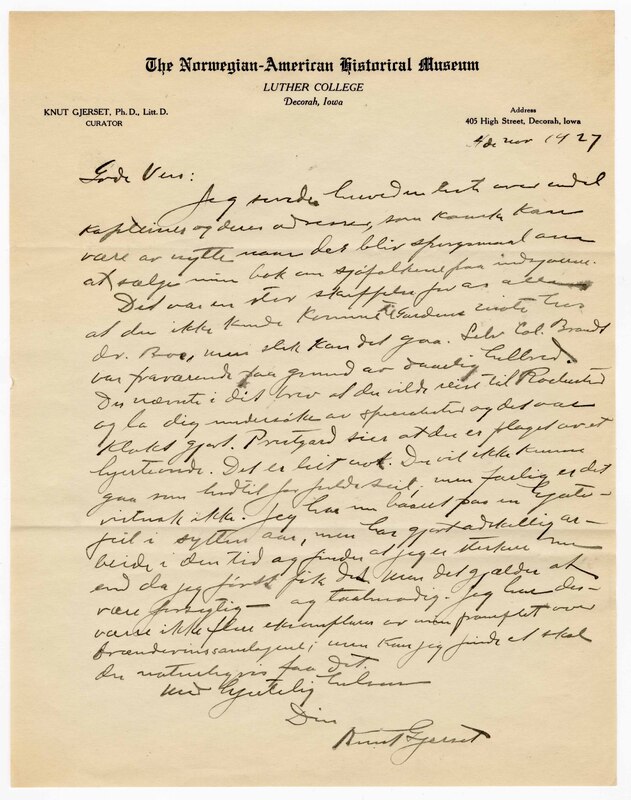 The Norwegian-American Historical Museum
LUTHER COLLEGE
Decorah, Iowa
KNUT GJERSET, Ph. D., Litt. D.
CURATOR
Address
405 High Street, Decorah, Iowa
4de nov 1927
Gode Ven:
Jeg sender herved en liste over endel
kapteiner og deres adresser, som kanske kan
være av nytte naar det blir spørgsmaal om
at sælge min bok om sjøfolkene paa indsjøerne.
Det var en stor skuffelse for os alle
at du ikke kunde komme til Gardens møte hos
dr. Boe, men slik kan det gaa. Selv Col. Brandt
var fraværende paa grund av daarlig helbred.
Du nævnte i dit brev at du vilde reise til Rochester
og la dig undersøke av specialister og det var
klokt gjort. Prestgard sier at du er plaget av et
hjerteonde. Det er leit nok. Du vil ikke kunne
gaa som hidtil for fulde seil, men farlig er det
vistnok ikke. Jeg har nu baaret paa en hjerte-
feil i sytten aar, men har gjort adskillig ar-
beide i den tid og finder at jeg er sterkere nu
end da jeg først fik det. Men det gjælder at
være forsigtig – og taalmodig. Jeg har des-
værre ikke flere eksemplarer av min pamflet over
men kan jeg finde et skal
du naturligvis faa det.
Med hjertelig hilsen
Din
Knut Gjerset